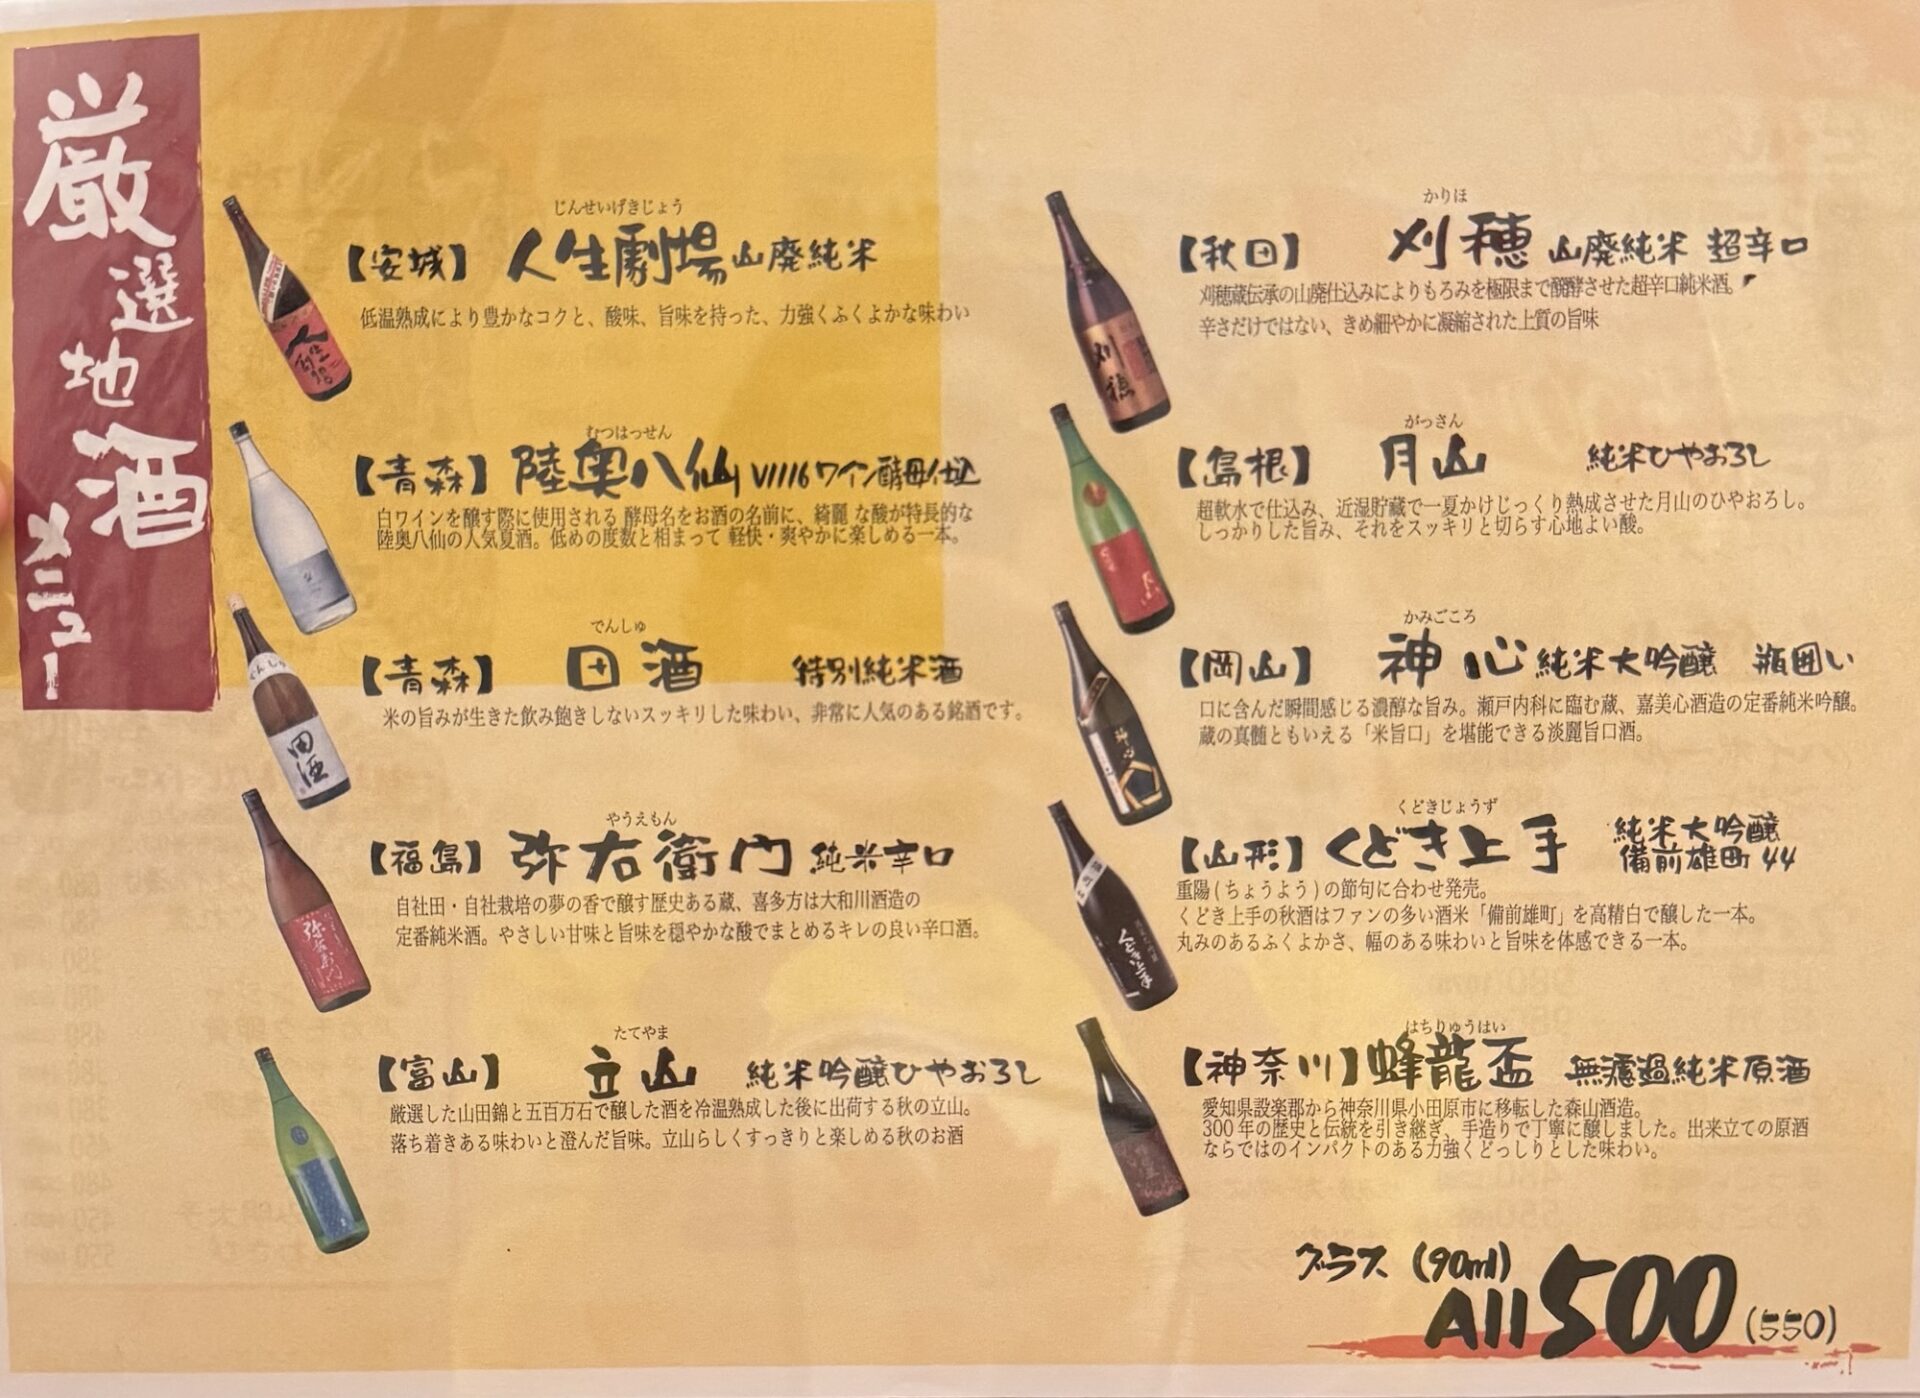 厳選地酒メニュー
じんせいげきじょう
【安城】 人生劇場 山廃純米
低温熟成により豊かなコクと、酸味、旨味を持った、力強くふくよかな味わい
むつはっせん
【青森】 陸奥八仙 V1116ワイン酵母仕込
白ワインを醸す際に使用される 酵母名をお酒の名前に、綺麗 な酸が特長的な
陸奥八仙の人気夏酒。低めの度数と相まって 軽快・爽やかに楽しめる一本。
でんしゅ
【青森】 田酒 特別純米酒
米の旨みが生きた飲み飽きしないスッキリした味わい、非常に人気のある銘酒です。
やうえもん
【福島】 弥右衛門 純米辛口
自社田・自社栽培の夢の香で醸す歴史ある蔵、喜多方は大和川酒造の
定番純米酒。やさしい甘味と旨味を穏やかな酸でまとめるキレの良い辛口酒。
たてやま
【富山】 立山 純米吟醸ひやおろし
厳選した山田錦と五百万石で醸した酒を冷温熟成した後に出荷する秋の立山。
落ち着きある味わいと澄んだ旨味。立山らしくすっきりと楽しめる秋のお酒
かりほ
【秋田】 刈穂 山廃純米 超辛口
刈穂蔵伝承の山廃仕込みによりもろみを極限まで醗酵させた超辛口純米酒。
辛さだけではない、きめ細やかに凝縮された上質の旨味
がっさん
【島根】 月山 純米ひやおろし
超軟水で仕込み、近湿貯蔵で一夏かけじっくり熟成させた月山のひやおろし。
しっかりした旨み、それをスッキリと切らす心地よい酸。
かみごころ
【岡山】 神心 純米大吟醸 瓶囲い
口に含んだ瞬間感じる濃醇な旨み。瀬戸内科に臨む蔵、嘉美心酒造の定番純米吟醸。
蔵の真髄ともいえる「米旨口」を堪能できる淡麗旨口酒。
くどきじょうず
【山形】 くどき上手 純米大吟醸
備前雄町44
重陽(ちょうよう)の節句に合わせ発売。
くどき上手の秋酒はファンの多い酒米「備前雄町」を高精白で醸した一本。
丸みのあるふくよかさ、幅のある味わいと旨味を体感できる一本。
はちりゅうはい
【神奈川】 蜂龍盃 無濾過純米原酒
愛知県設楽郡から神奈川県小田原市に移転した森山酒造。
300年の歴史と伝統を引き継ぎ、手造りで丁寧に醸しました。出来立ての原酒
ならではのインパクトのある力強くどっしりとした味わい。
グラス (90ml)
All 500 (550)